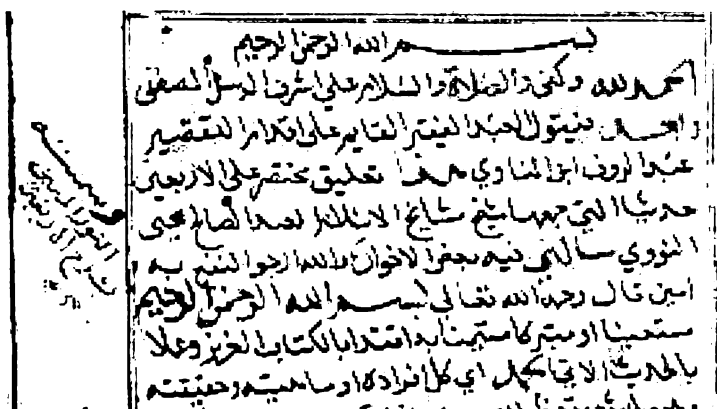 بسم الله الرحمن الرحيم
الحمد لله وكفى والصلاة والسلام على اشرف الرسل المصطفى
وبعد فيقول العبد الفقير القايم على اقدام التقصير
عبد الروف ابن المناوي هذا تعليق مختصر على الاربعين
حديثا التي جمعها شيخ مشايخ الاسلام العبد الصالح يحيى
النووي سالني فيه بعض الاخوان والله ارجو النفع به
امين قال رحمه الله تعالى بسم الله الرحمن الرحيم
مستعينا او متبركا مستيمنا به اقتدا بالكتاب العزيز وعملا
بالحديث الاتي الحمد اي كل افراده او ماهيته وحقيقته
وسمته
النور المبين
لشرح الاربعين